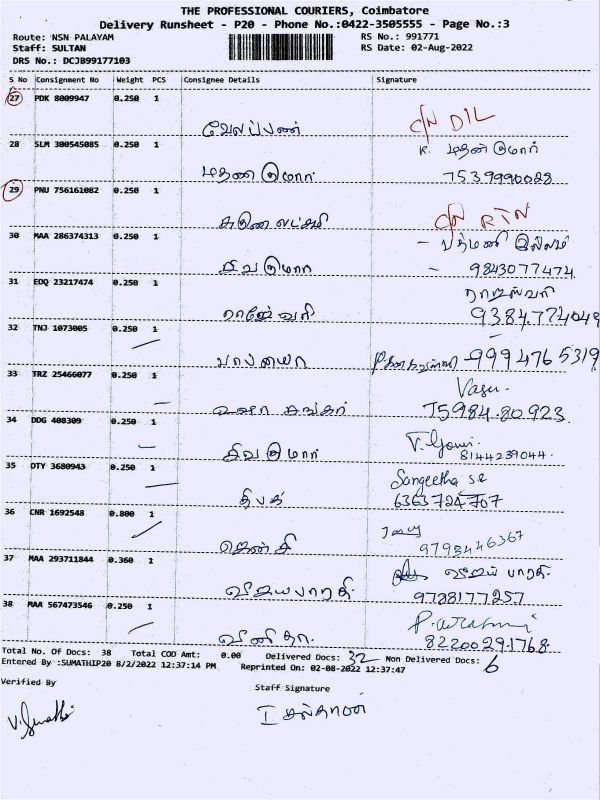 THE PROFESSIONAL COURIERS, Coimbatore
Delivery Runsheet - P20 - Phone No.:0422-3505555 - Page No.:3
Route: NSN PALAYAM RS No.: 991771
Staff: SULTAN RS Date: 02-Aug-2022
DRS No.: DCJB99177103
S No Consignment No Weight PCS Consignee Details Signature
27 PDK 8009947 0.250 1
வேலப்பன் C/N D/L
28 SLM 300545085 0.250 1 K. மதன் குமார்
மதண குமார் 7539990028
29 PNU 756161082 0.250 1
கருணை லட்சுமி C/N RTN
30 MAA 286374313 0.250 1 - பத்மணி இல்லம்
சிவகுமார் - 9843077474
31 EDQ 23217474 0.250 1
ராஜேஸ்வரி 9384774049
32 TNJ 1073005 0.250 1
பாப்பையா 9994765319
33 TRZ 25466077 0.250 1 Vasu.
உஷா சங்கர் 75984.80923
34 DDG 408309 0.250 1 V. Gowri.
சிவகுமார் 8144239044.
35 OTY 3680943 0.250 1 Sangeetha SR
தீபக் 6363724707
36 CNR 1692548 0.800 1 Jency
ஜென்சி 9793446367
37 MAA 293711844 0.360 1 விஜய் பாரதி.
விஜயபாரதி. 9788177257
38 MAA 567473546 0.250 1
வினிதா. 8220029.1768.
Total No. Of Docs: 38 Total COD Amt: 0.00 Delivered Docs: 32 Non Delivered Docs: 6
Entered By :SUMATHIP20 8/2/2022 12:37:14 PM Reprinted On: 02-08-2022 12:37:47
Verified By Staff Signature